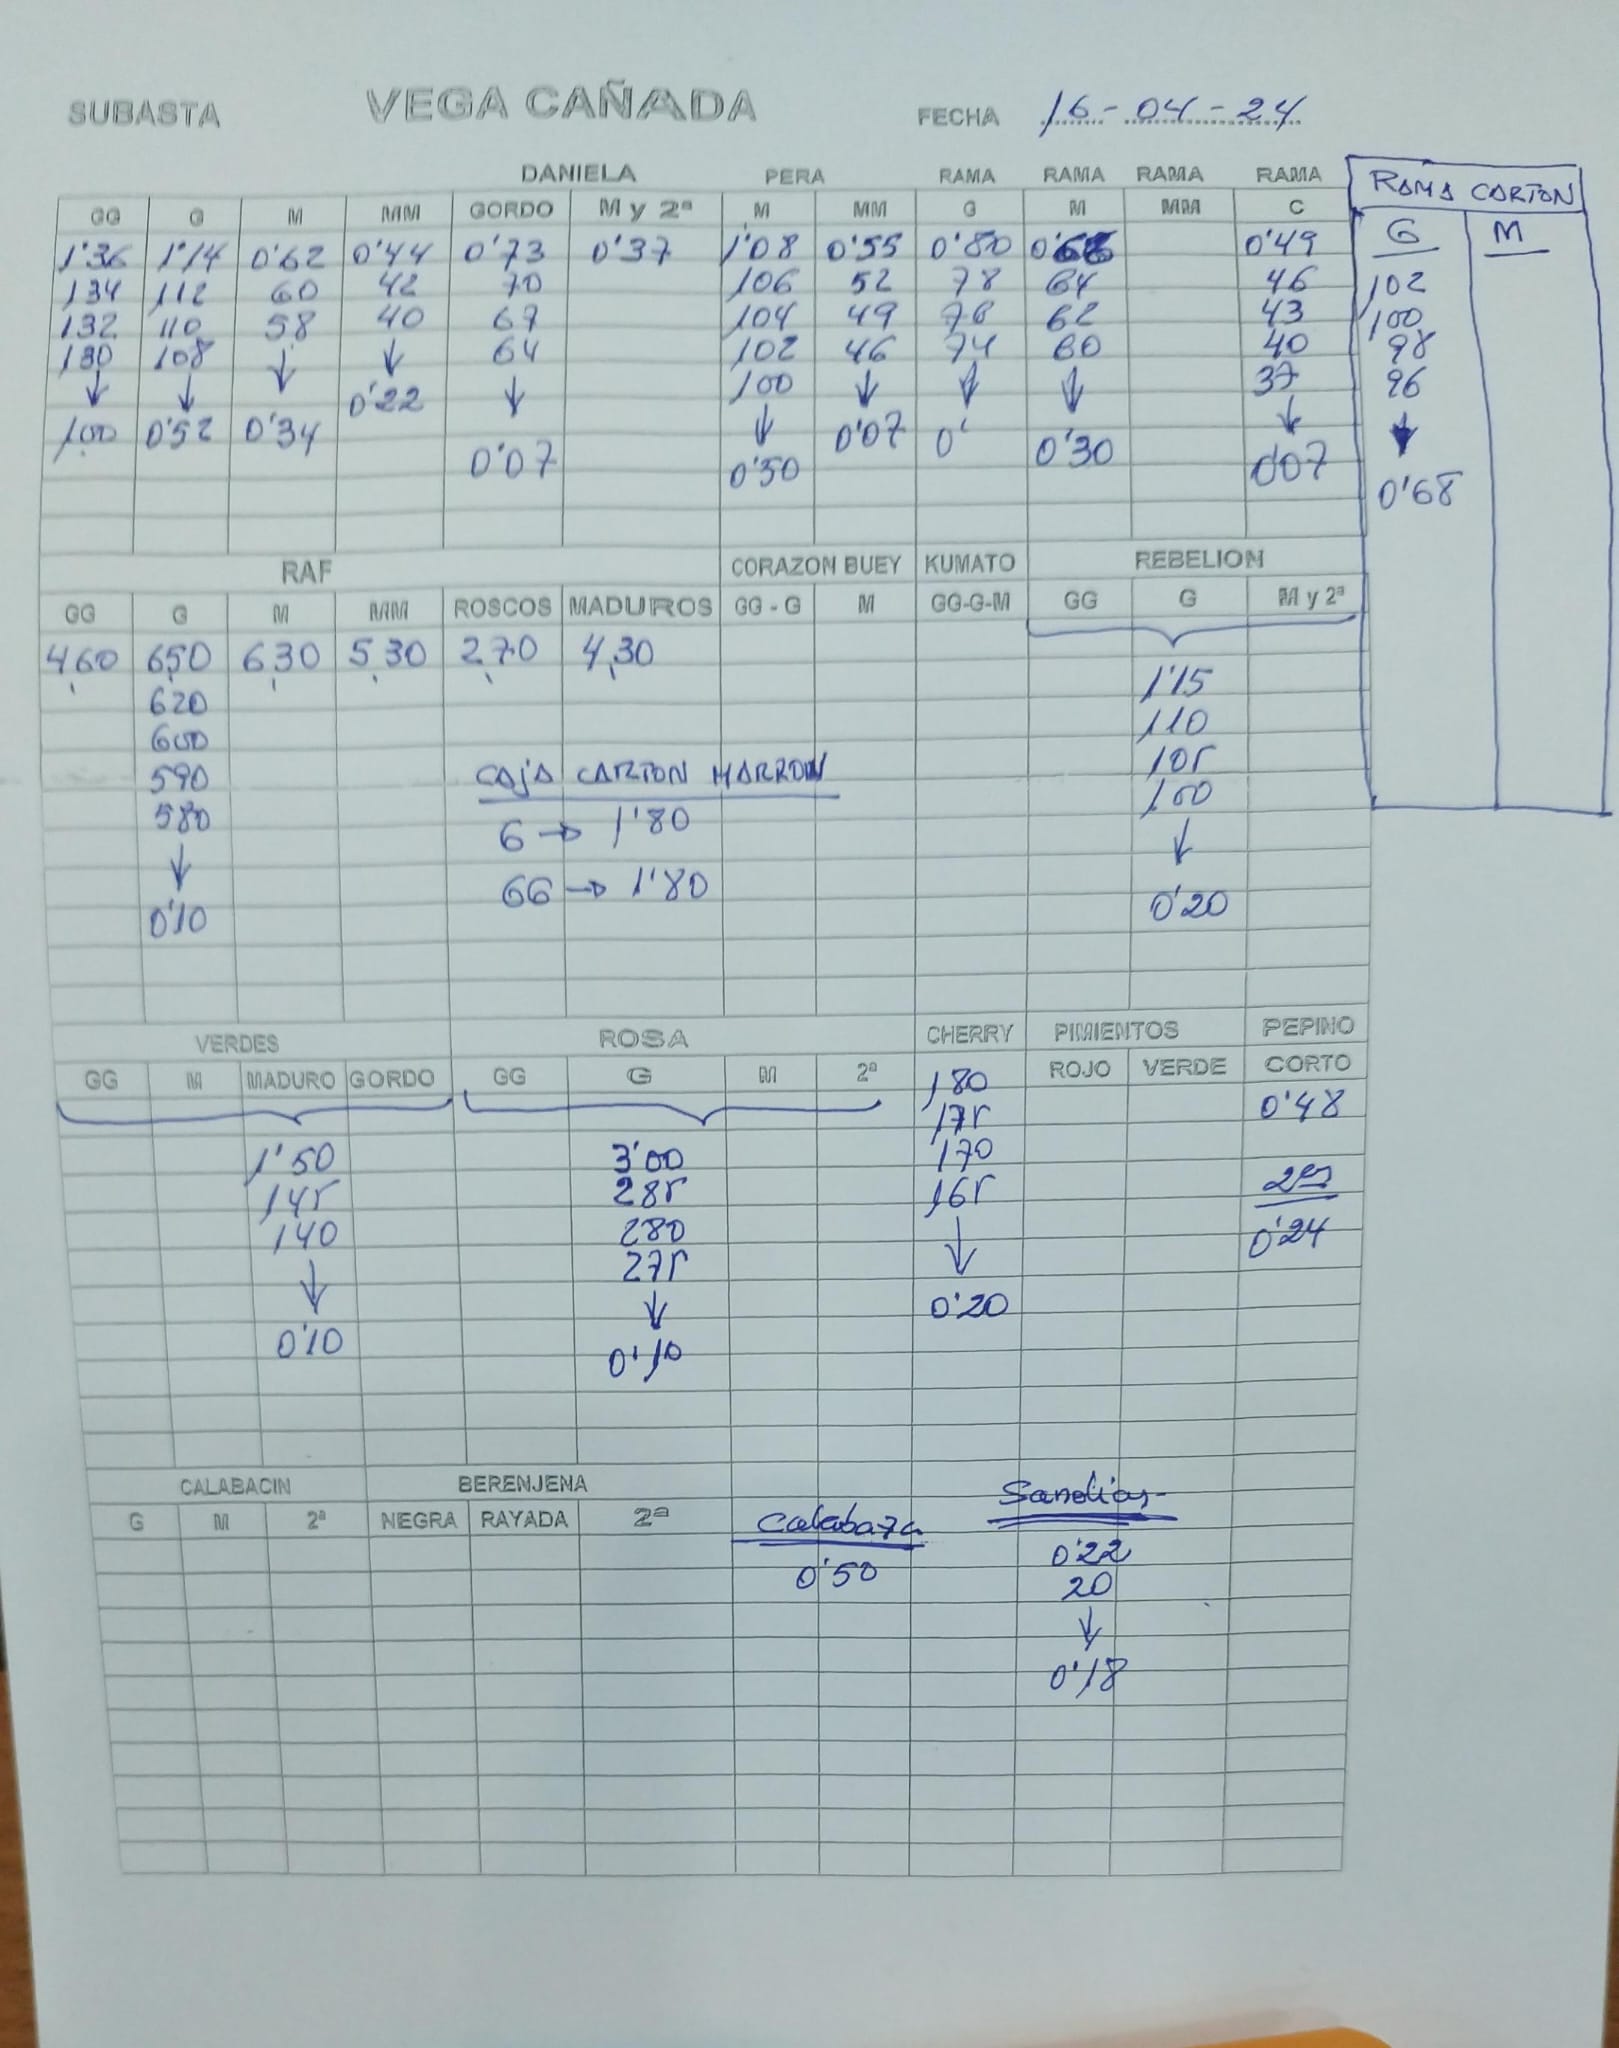 SUBASTA VEGA CAÑADA FECHA 16-04-24
DANIELA PERA RAMA RAMA RAMA RAMA RAMA CARTON
GG G M MM GORDO M y 2ª M MM G M MM C G M
1'36 1'14 0'62 0'44 0'73 0'37 1'08 0'55 0'80 0'49
134 112 60 42 70 106 52 78 64 46 102
132 110 58 40 67 104 49 76 62 43 100
130 108 ↓ ↓ 64 102 46 74 60 40 98
↓ ↓ 0'22 ↓ 100 ↓ ↓ ↓ 37 96
100 0'52 0'34 ↓ 0'07 0' ↓ ↓
0'07 0'50 0'30 0'07 0'68
RAF CORAZON BUEY KUMATO REBELION
GG G M MM ROSCOS MADUROS GG - G M GG-G-M GG G M y 2ª
4,60 6,50 6,30 5,30 2,70 4,30 1'15
620 110
600 105
590 CAJA CARTON MARRON 100
580 G → 1'80 ↓
↓ GG → 1'80 0'20
0'10
VERDES ROSA CHERRY PIMIENTOS PEPINO
GG M MADURO GORDO GG G M 2ª ROJO VERDE CORTO
180 0'48
175
1'50 3'00 170 2ª
145 285 165 0'24
140 280 ↓
↓ 275 0'20
0'10 ↓
0'10
CALABACIN BERENJENA
G M 2ª NEGRA RAYADA 2ª Calabaza Sandias-
0'50 0'22
20
↓
0'18